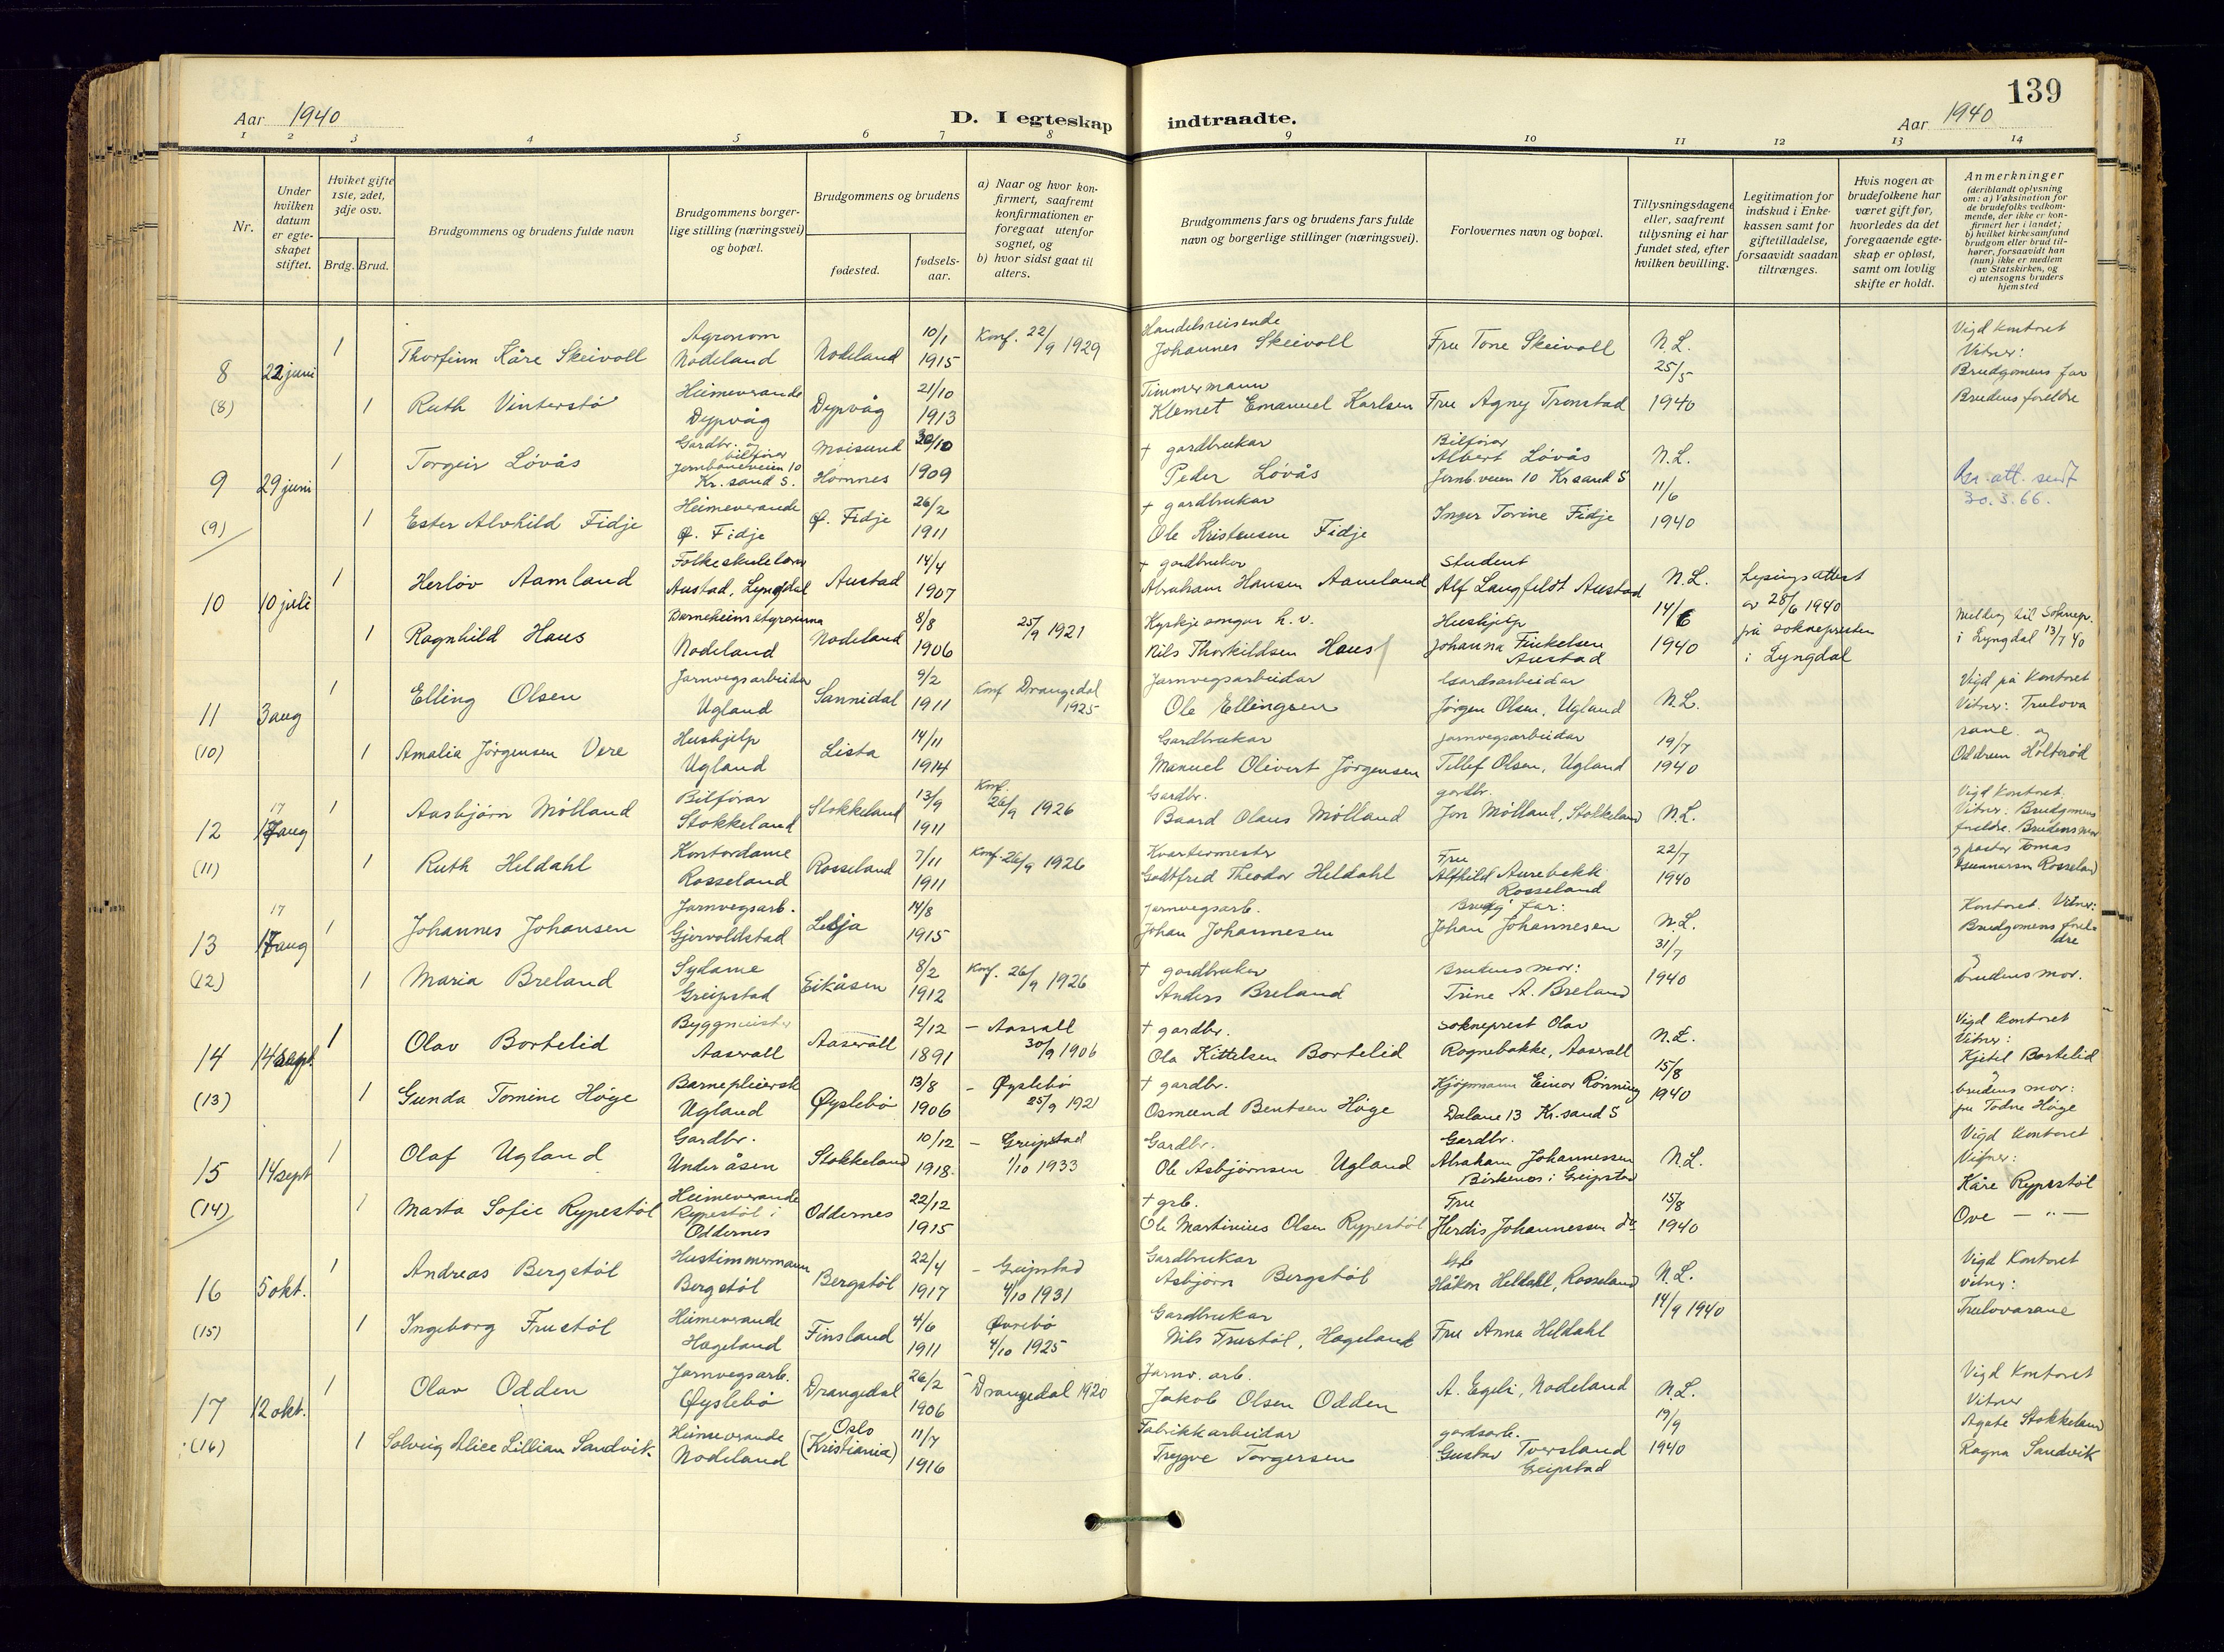 139
Aar 1940
D. I egteskap indtraadte.
Aar 1940
1 2 3 4 5 6 7 8 9 10 11 12 13 14
Nr.
Under hvilken datum er egte-skapet stiftet.
Hviket gifte 1ste, 2det, 3dje osv.
Brdg. Brud.
Brudgommens og brudens fulde navn
Brudgommens borger-lige stilling (næringsvei) og bopæl.
Brudgommens og brudens
fødested.
fødsels-aar.
a) Naar og hvor kon-firmert, saafremt konfirmationen er foregaat utenfor sognet, og
b) hvor sidst gaat til alters.
Brudgommens fars og brudens fars fulde navn og borgerlige stillinger (næringsvei).
Forlovernes navn og bopæl.
Tillysningsdagene eller, saafremt tillysning ei har fundet sted, efter hvilken bevilling.
Legitimation for indskud i Enke-kassen samt for giftetilladelse, forsaavidt saadan tiltrænges.
Hvis nogen av brudefolkene har været gift før, hvorledes da det foregaaende egte-skap er opløst, samt om lovlig skifte er holdt.
Anmerkninger
(deriblandt oplysning om: a) Vaksination for de brudefolks vedkom-mende, der ikke er kon-firmert her i landet; b) hvilket kirkesamfund brudgom eller brud til-hører, forsaavidt han (hun) ikke er medlem av Statskirken, og c) utensogns bruders hjemsted
8 22 juni 1 Thorfinn Kåre Skeivoll Agronom Nodeland Nodeland 10/1 1915 Konf. 22/9 1929 Handelsreisende Johannes Skeivoll Fru Tone Skeivoll N.L. 25/5 1940 Vigd kontoret Vitner: Brudgomens far Brudens foreldre
(8) 1 Ruth Vinterstø Heimeverande Dypvåg Dypvåg 21/10 1913 Timmermann Klemet Emanuel Karlsen Fru Agny Tronstad
9 29 juni 1 Torgeir Løvås Gardbr. og bilførar Jernbaneveien 10 Kr.sand S. Moisund Hornnes 30/10 1909 † gardbrukar Peder Løvås Bilførar Albert Løvås Jernb.veien 10 Kr sand S N.L. 11/6 1940 att. sendt 30.3.66.
(9) 1 Ester Alvhild Fidje Heimeverande Ø. Fidje Ø. Fidje 26/2 1911 † gardbrukar Ole Kristensen Fidje Inger Torine Fidje
10 10 juli 1 Herlov Aamland Folkeskulelærar Austad, Lyngdal Austad 14/4 1907 † gardbrukar Abraham Hansen Aamland Student Alf Langfeldt Austad N.L. 14/6 1940 Lysingsattest av 28/6 1940 på soknepresten i Lyngdal Melding til Soknepr. i Lyngdal 13/7 40
1 Ragnhild Haus Barneheimstyrarinna Nodeland Nodeland 8/8 1906 25/9 1921 Kyrkjesongar h. v. Nils Thorkildsen Haus Hushjelp Johanna Finkelsen Austad
11 3 aug 1 Elling Olsen Jarnvegsarbeidar Ugland Sannidal 9/2 1911 Konf Drangedal 1925 Jarnvegsarbeidar Ole Ellingsen Gardsarbeidar Jørgen Olsen, Ugland N.L. 19/7 1940 Vigd på kontoret Vitner: Trulova rane og Oddrun Holterød
(10) 1 Amalia Jørgensen Vere Hushjelp Ugland Lista 14/11 1914 Gardbrukar Manuel Olivert Jørgensen Jarnvegsarbeidar Tellef Olsen, Ugland
12 17 aug 17 1 Aasbjørn Mølland Bilførar Stokkeland Stokkeland 13/9 1911 Konf. 26/9 1926 Gardbr. Baard Olaus Mølland gardbr. Jon Mølland, Stokkeland N.L. 22/7 1940 Vigd kontoret. Vitner: Brudgomens foreldre. Brudens mor og pastor Tomas Gunnarson Rosseland
(11) 1 Ruth Heldahl Kontordame Rosseland Rosseland 7/11 1911 Konf 26/9 1926 Kvartermester Godtfred Theodor Heldahl Fru Alfhild Aurebekk Rosseland
13 17 aug 17 1 Johannes Johansen Jarnvegsarb. Gjervoldstad Lesja 14/8 1915 Jarnvegsarb. Johan Johannesen Brudg. far: Johan Johannesen N.L. 31/7 1940 Kontoret. Vitner: Brudgomens foreldre og brudens mor.
(12) 1 Maria Breland Sydame Greipstad Eikåsen 8/2 1912 Konf. 26/9 1926 † gardbruker Anders Breland Brudens mor: Trine A. Breland
14 14 sept. 1 Olav Bortelid Byggmeister Aaserall Aaserall 2/12 1891 – Aaserall 30/9 1906 † gardbr. Ola Kittelsen Bortelid Sokneprest Olav Rognebakke, Aaserall N.L. 15/8 1940 Vigd kontoret Vitner: Kjetel Bortelid og brudens mor: fru Todne Høge
(13) 1 Gunda Tomine Høge Barnepleiersk Ugland Øyslebø 13/8 1906 – Øyslebø 25/9 1921 † gardbr. Osmund Bentsen Høge Kjøpmann Einar Rønning Dalane 13 Kr.sand S
15 14 sept 1 Olaf Ugland Gardbr. Underåsen Stokkeland 10/12 1918. – Greipstad 1/10 1933 Gardbr. Ole Asbjørnsen Ugland Gardbr. Abraham Johannessen Birkenes i Greipstad N.L. 15/8 1940 Vigd kontoret Vitner: Kåre Rypestøl Ove – " –
(14) 1 Marta Sofie Rypestøl Heimeverande Rypestøl i Oddernes Oddernes 22/12 1915 † grb. Ole Martinius Olsen Rypestøl Fru Herdis Johannessen do
16 5 okt. 1 Andreas Bergstøl Hustimmermann Bergstøl Bergstøl 22/4 1917 – Greipstad 4/10 1931 Gardbrukar Asbjørn Bergstøl Håkon Heldahl, Rosseland N.L. 14/9 1940 Vigd Kontoret Vitner: Trulovarane
(15) 1 Ingeborg Frustøl Heimeverande Hægeland Finsland 4/6 1911 Øvrebø 4/10 1925 Gardbrukar Nils Frustøl, Hægeland Fru Anna Heldahl
17 12 okt. 1 Olav Odden Jarnvegsarb. Øyslebø Drangedal 26/2 1906 – Drangedal 1920 Jarnv. arb. Jakob Olsen Odden A. Egeli, Nodeland N.L. 19/9 1940 Vigd kontoret Vitner Agate Stokkeland Ragna Sandvik
(16) 1 Solveig Alice Lillian Sandvik. Heimeverande Nodeland Oslo (Kristiania) 11/7 1916 Fabrikkarbeidar Trygve Torgersen gardsarb. Gustav Tversland Greipstad